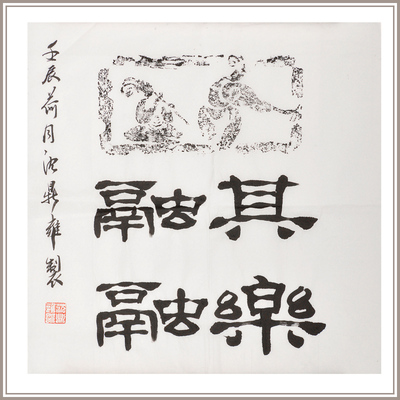 其樂
融融
壬辰荷月沈鼎雍製